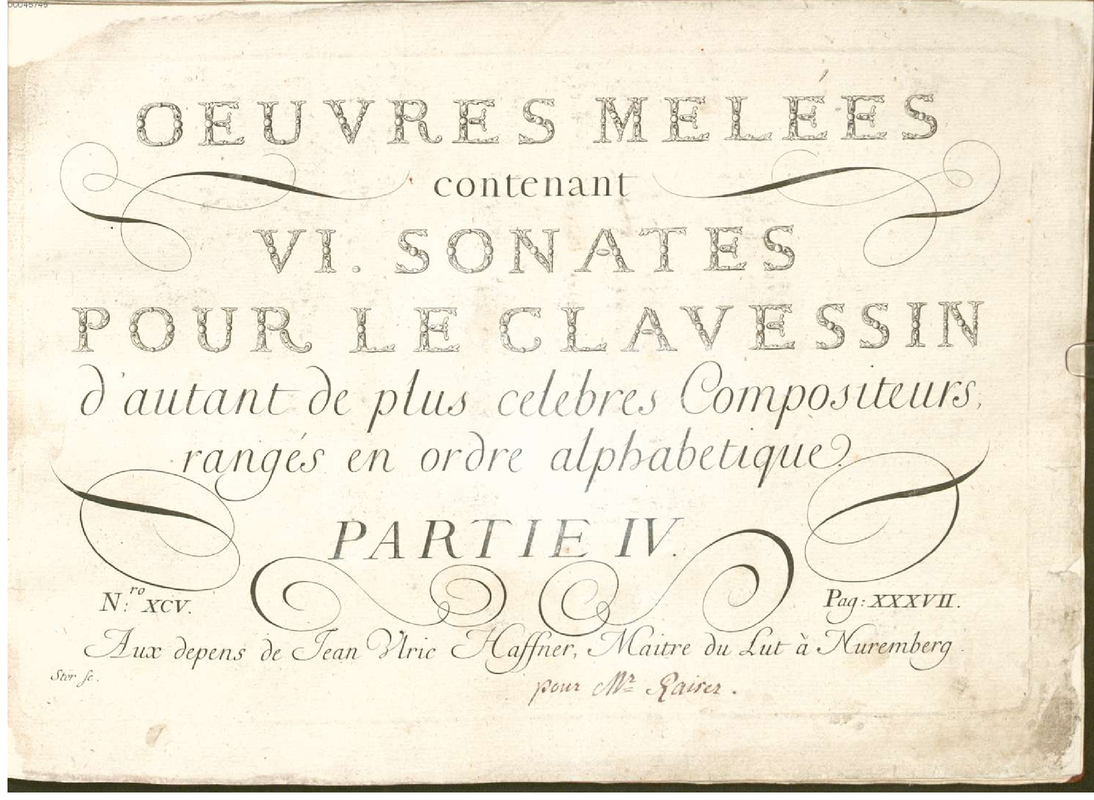 00045745
OEUVRES MELÉES
contenant
VI. SONATES
POUR LE CLAVESSIN
d'autant de plus celebres Compositeurs,
rangés en ordre alphabetique.
PARTIE IV.
N:ro XCV. Pag: XXXVII.
Aux depens de Jean Ulric Haffner, Maitre du Lut à Nuremberg.
Stör sc.
pour Mr Raiser.